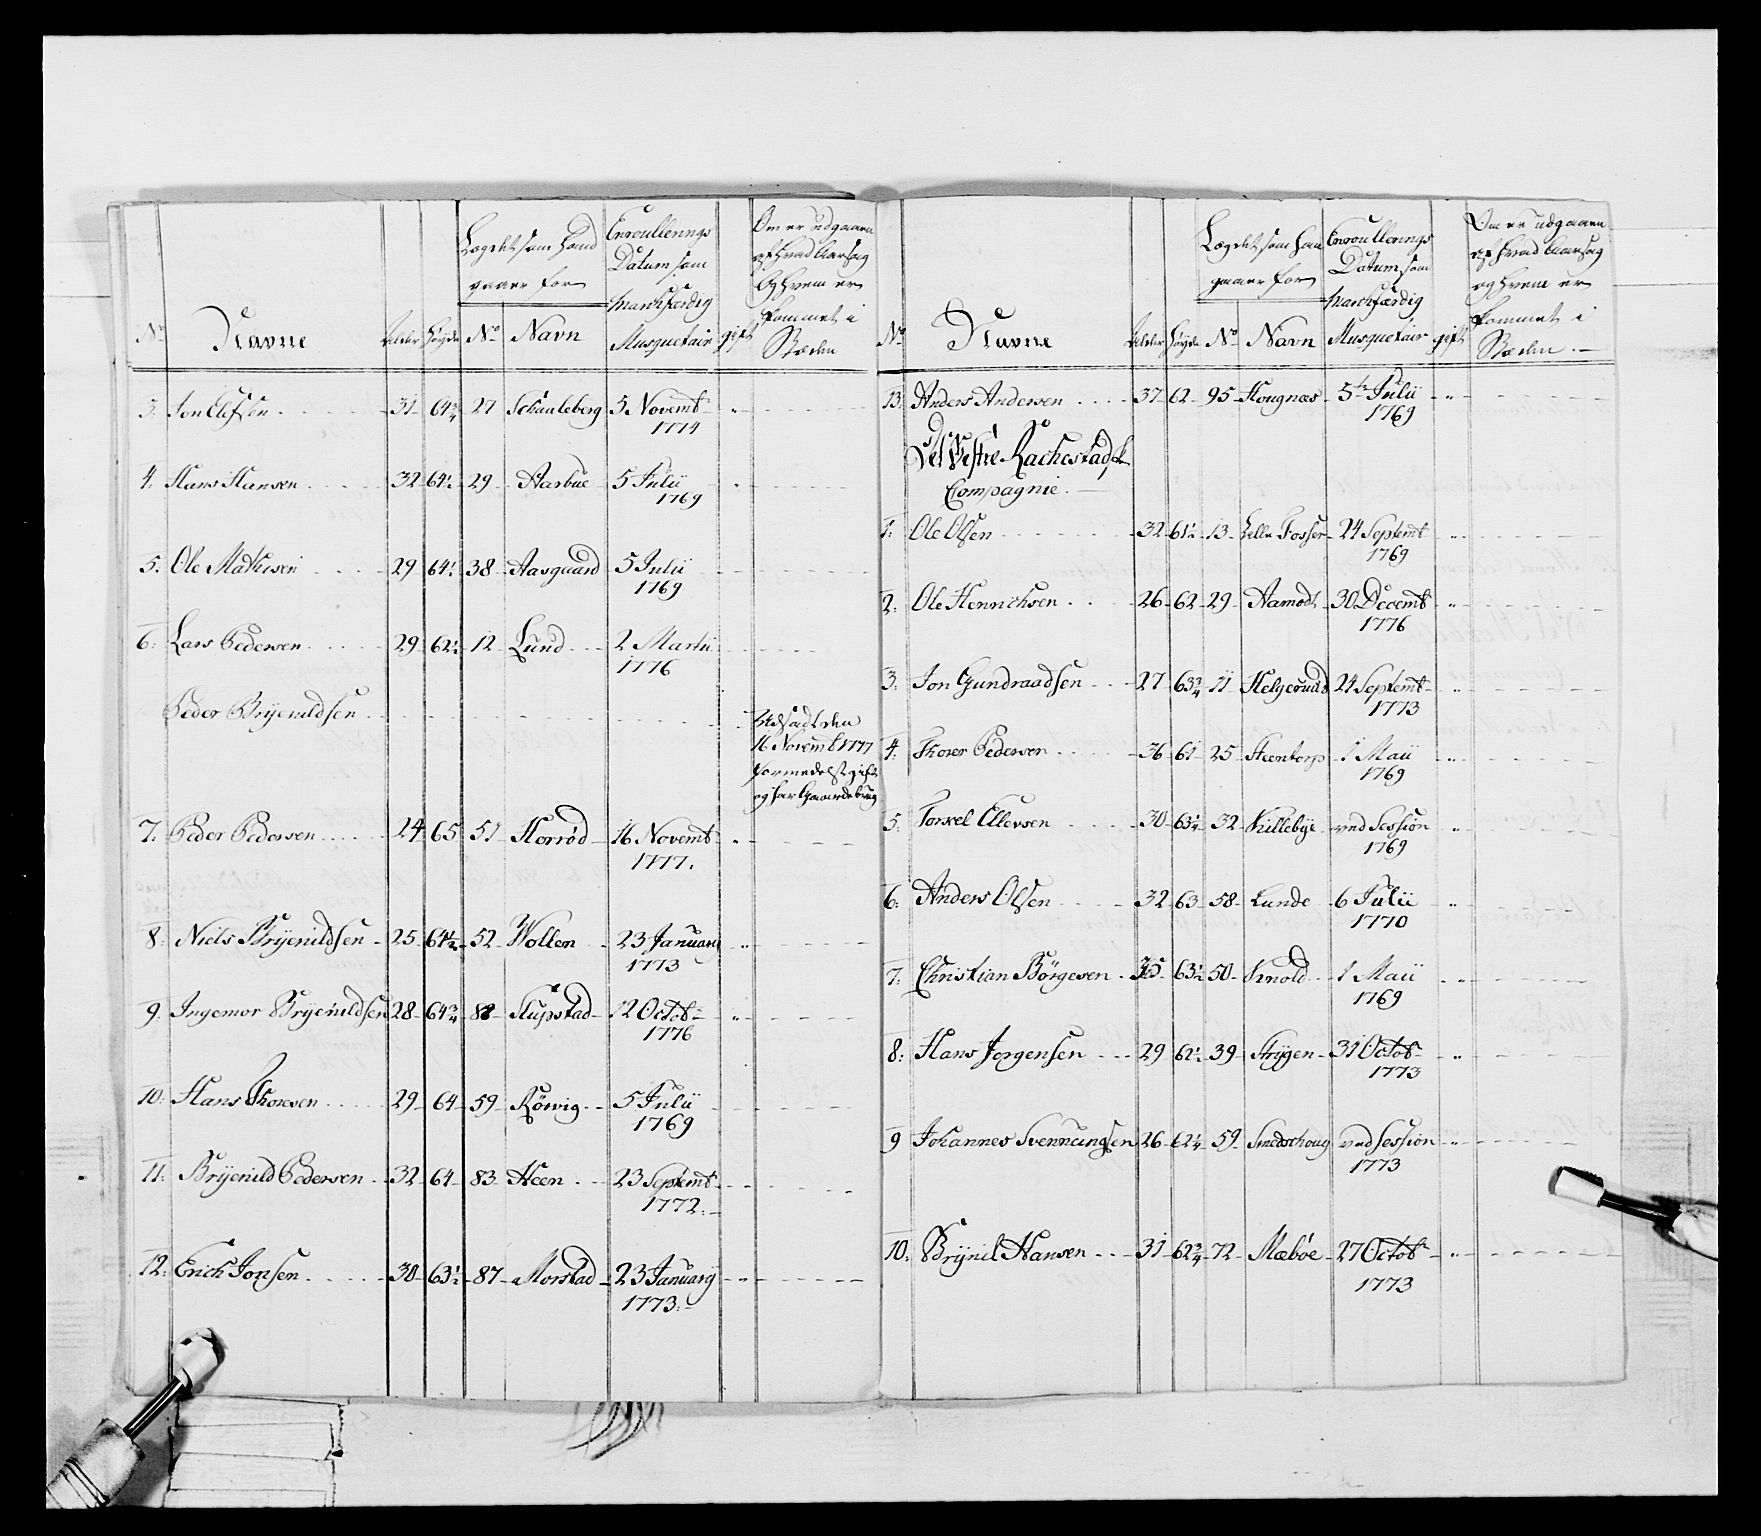 Lægdet som hand
gaaer for
Enroullerings
Datum som
marchfærdig
Musquetair
Om er udgaaen
af hvad Aarsag
og hvem er
kommet i
Stæden
No Navne Alder Høyde No Navn gift
3. Jon Elefsen 31 64¾ 27 Schauleberg 5 Novembr
1774
4. Hans Hansen 32 64½ 29 Aasbue 5 Julii
1769
5. Ole Mathisen 29 64½ 38 Aasguard 5 Julii
1769
6. Lars Pedersen 29 62½ 12 Lund 2 Martii
1776
Peder Bryenildsen Udsadt den
16 Novemb 1777
formedelst gift
og har Gaardebrug
7. Peder Pedersen 24 65 51 Horrød 16 Novemb
1777.
8. Niels Bryenildsen 25 64½ 52 Wollen 23 January
1773
9. Ingemor Bryenildsen 28 64¾ 88 Slupstad 12 Octob
1776
10. Hans Thoresen 29 64 59 Röwig 5 Julii
1769
11. Bryenild Pedersen 32 64 83 Heen 23 Septemb
1772.
12. Erich Jonsen 30 63½ 87 Morstad 23 January
1773.
Lægdet som han
gaaer for
Enroullerings
Datum som
marchfærdig
Musquetair
Om er udgaaen
af hvad Aarsag
og hvem er
kommet i
Stæden
No Navne Alder Høyde No Navn gift
13. Anders Andersen 37 62 95 Hougnæs 5te Julii
1769
Det Vestre Rachestadsk
Compagnie.
1. Ole Olsen 32 61½ 13 Lille Fosser 24 Septemb
1769
2. Ole Henrichsen 26 62 29 Aamodt 30 Decemb
1776
3. Jon Gundraadsen 27 63¾ 11 Helgerud 24 Septemb
1773
4. Thorer Pedersen 36 61 25 Steentorp 1 Maii
1769
5. Torkel Ellevsen 30 63¼ 32 Killebye ved Session
1769
6. Anders Olsen 32 63 58 Lunde 6 Julii
1770
7. Christian Börgesen 35 63½ 50 Krold 1 Maii
1769
8. Hans Jorgensen 29 62½ 39 Strÿgen 31 Octob
1773
9 Johannes Svennungsen 26 62¼ 59 Smedschoug ved Session
1773
10. Brÿnil Hansen 31 62¾ 72 Mæbøe 27 Octob
1773